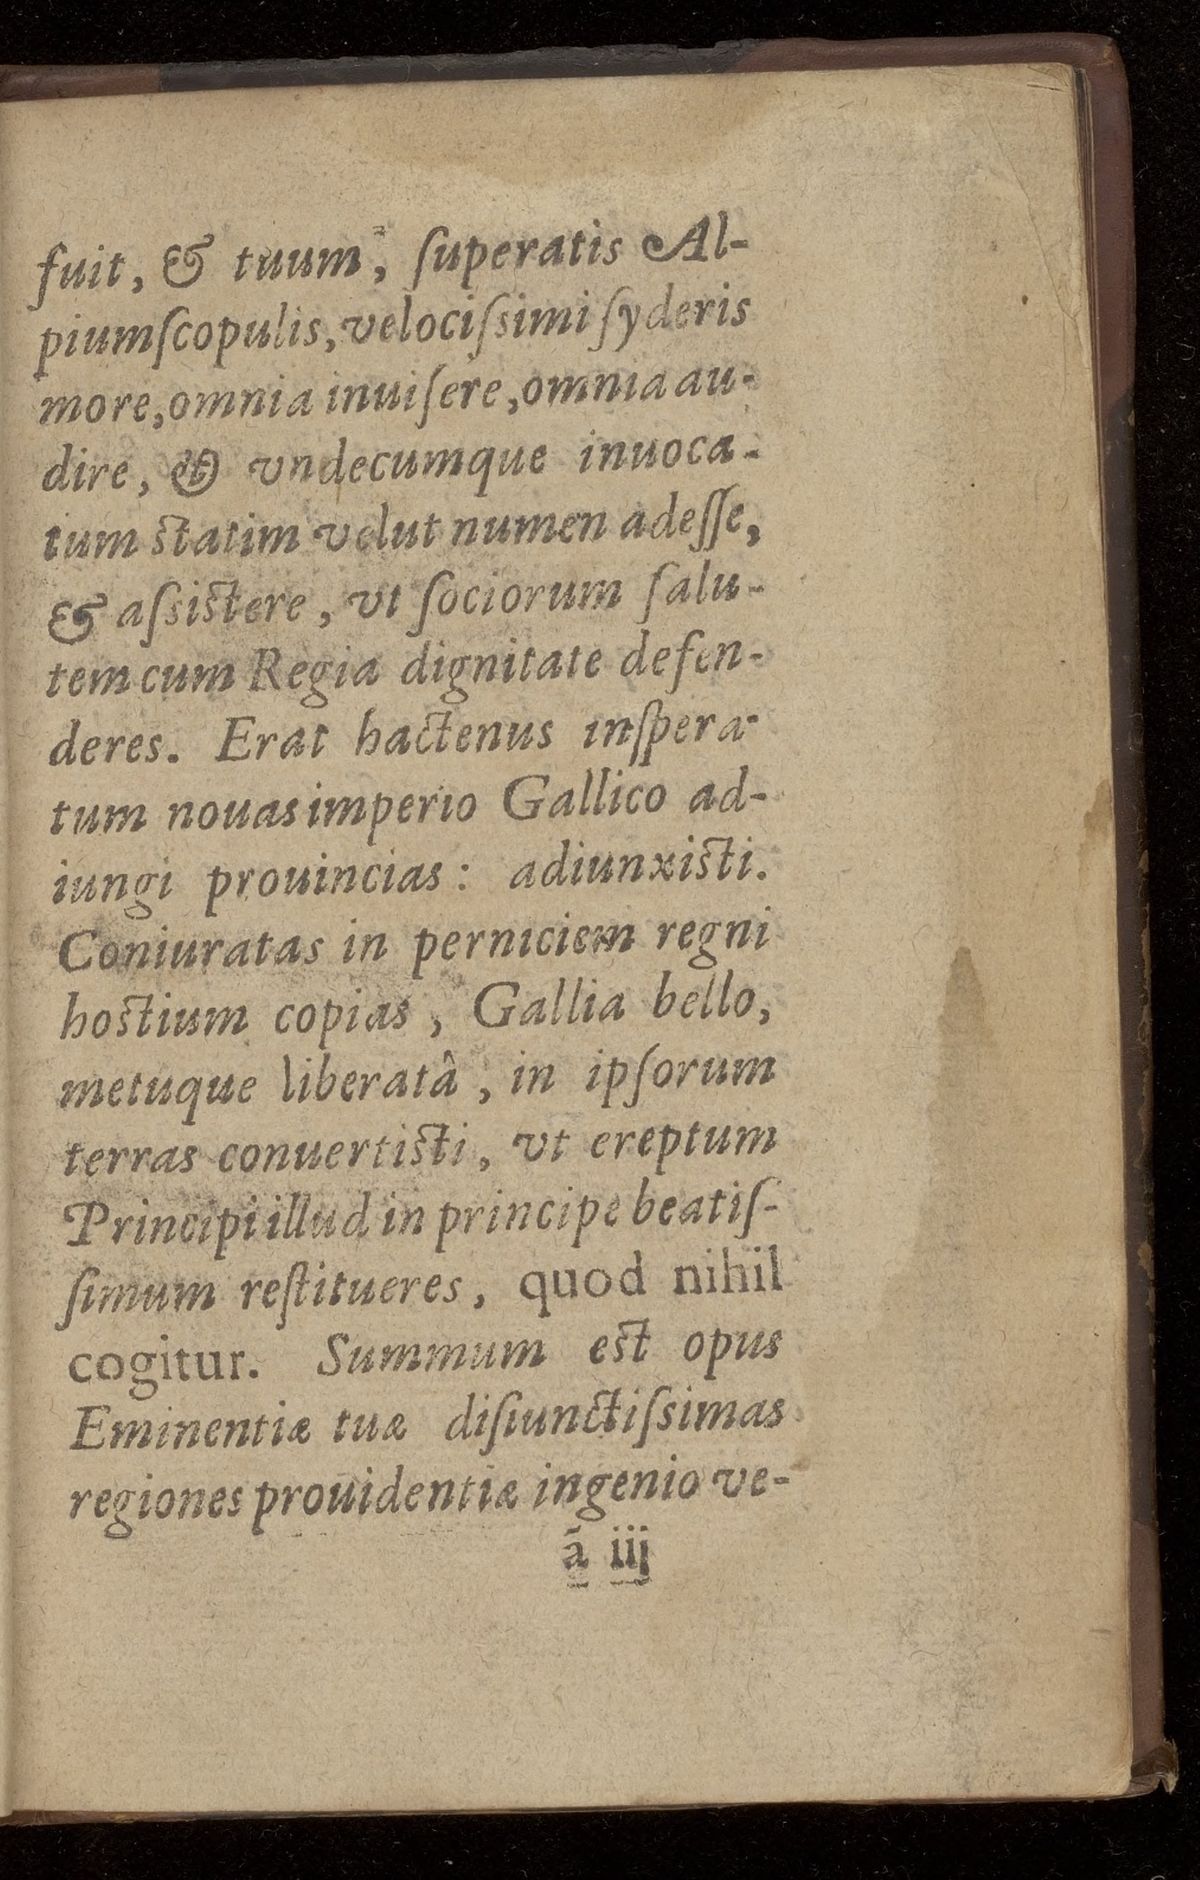 fuit, & tuum, ſuperatis Al-
piumſcopulis, velociſsimi ſyderis
more, omnia inuiſere, omnia au-
dire, & vndecumque inuoca-
tum ſtatim velut numen adeſſe,
& aſsiſtere, vt ſociorum ſalu-
tem cum Regia dignitate defen-
deres. Erat hactenus inſpera-
tum nouas imperio Gallico ad-
iungi prouincias: adiunxiſti.
Coniuratas in perniciem regni
hoſtium copias, Gallia bello,
metuque liberatâ, in ipſorum
terras conuertiſti, vt ereptum
Principi illud in principe beatiſ-
ſimum reſtitueres, quod nihil
cogitur. Summum eſt opus
Eminentiæ tuæ diſiunctiſsimas
regiones prouidentiæ ingenio ve-
ã iij